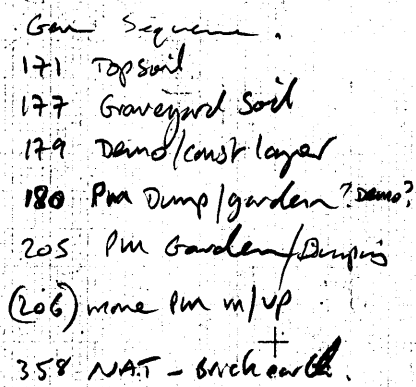 Gen Sequence.
171 Topsoil
177 Graveyard Soil
179 Demo/const layer
180 Pm Dump/garden ?Demo?
205 Pm Garden/Dumping
(206) more Pm m/up
358 NAT - Brickearth.